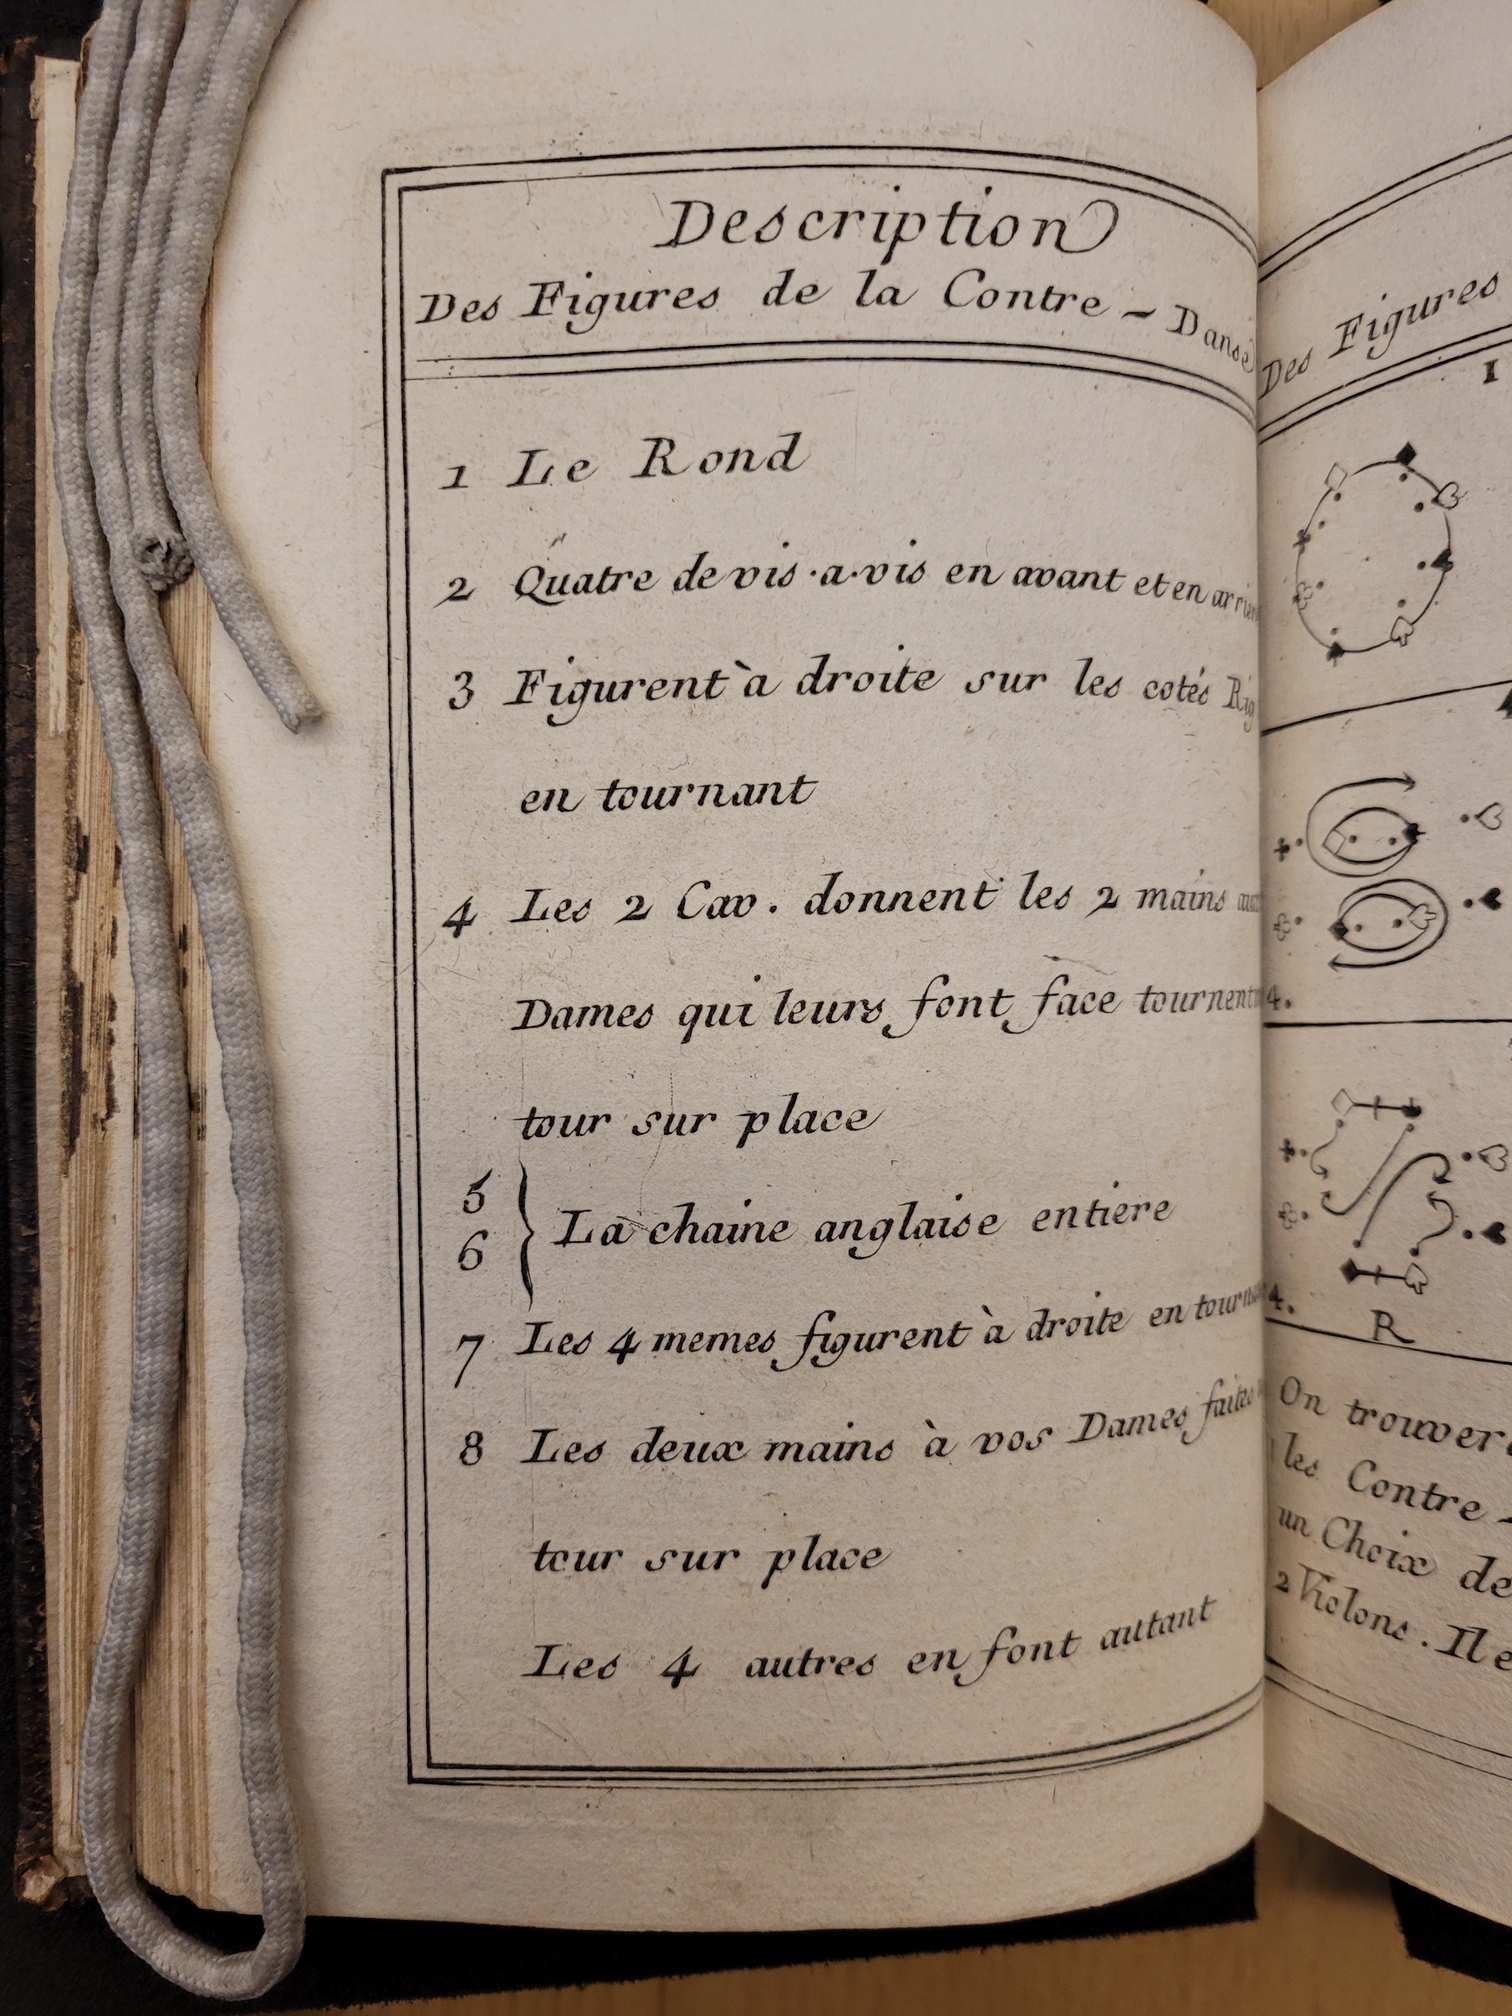 Description
Des Figures de la Contre - Danse
1 Le Rond
2 Quatre de vis·a·vis en avant et en
3 Figurent à droite sur les cotés
en tournant
4 Les 2 Cav. donnent les 2 mains
Dames qui leurs font face tournent
tour sur place
5
6 } La chaine anglaise entiere
7 Les 4 memes figurent à droite en
8 Les deux mains à vos Dames faites
tour sur place
Les 4 autres en font autant
Des Figures
1
4.
4.
R
On
les Contre -
un Choix de
2 Violons. Il